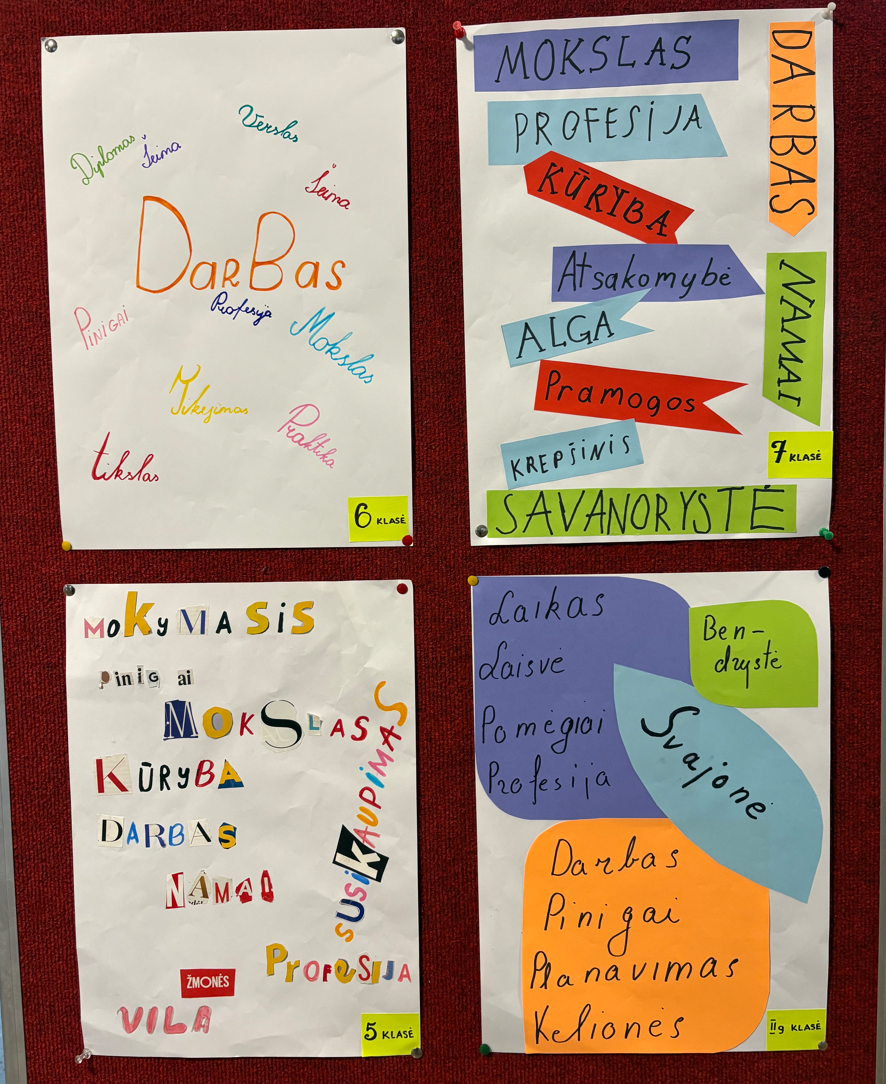 Verslas
Diplomas
Šeima
Šeima
DarBas
Profesija
Pinigai
Mokslas
Įkvėjimas
Praktika
tikslas
6 KLASĖ
MOKSLAS
DARBAS
PROFESIJA
KŪRYBA
Atsakomybė
NAMAI
ALGA
Pramogos
KREPŠINIS
7 KLASĖ
SAVANORYSTĖ
MoKyMASiS
Pinigai
MOKSLAS
SUSIKAUPIMAS
KŪRYBA
DARBAS
NAMAI
PrOFeSIJA
ŽMONĖS
VILA
5 KLASĖ
Laikas
Laisvė
Pomėgiai
Profesija
Ben-
drystė
Svajonė
Darbas
Pinigai
Planavimas
Kelionės
IIg KLASĖ